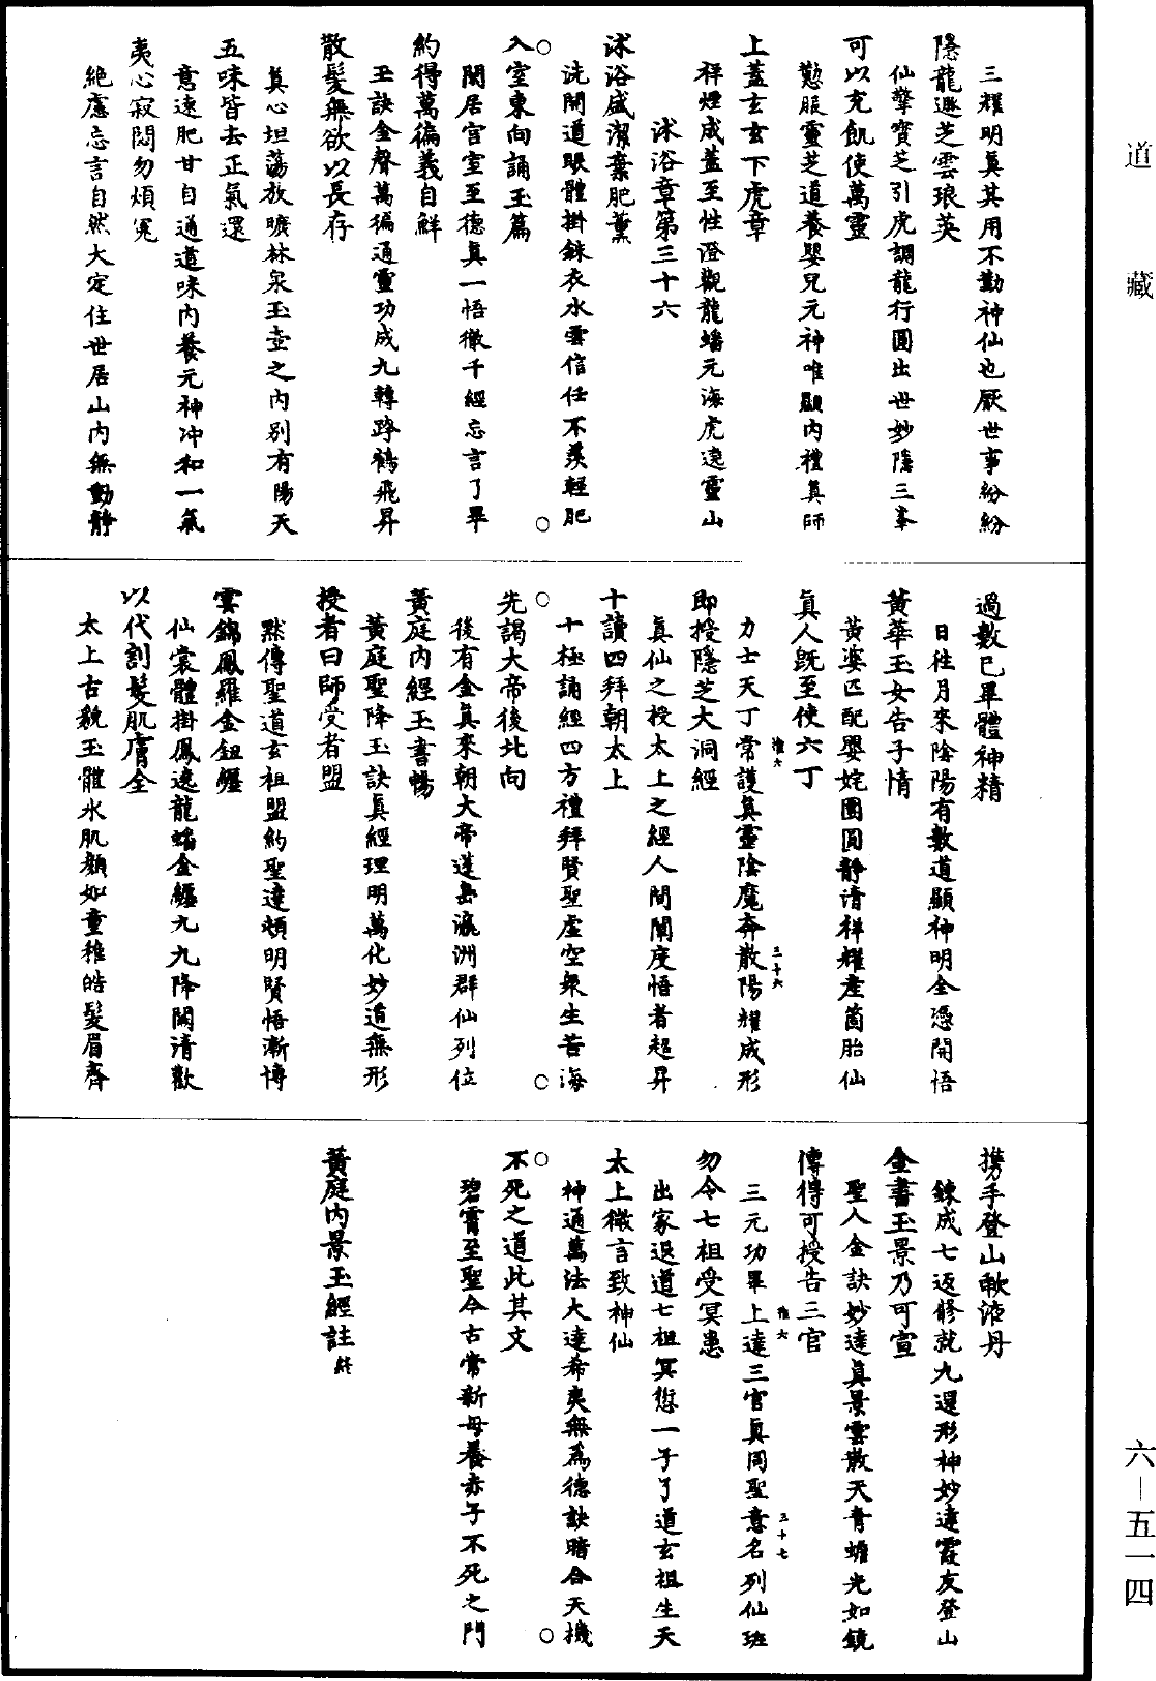 道藏
三耀明真其用不勤神仙也厭世事紛紛
隱龍遯芝雲琅英
仙擎寶芝引虎調龍行圓出世妙隱三峯
可以充飢使萬靈
懃服靈芝道養嬰兒元神唯顯內禮真師
上蓋玄玄下虎章
祥煙成蓋至性澄觀龍蟠元海虎遶靈山
沐浴章第三十六
沐浴盛潔棄肥薰
洗開道眼體掛銖衣水雲信任不羨輕肥
入室東向誦玉篇
閑居宮室至德真一悟徹千經忘言了畢
約得萬徧義自鮮
玉訣金聲萬徧通靈功成九轉跨鶴飛昇
散髮無欲以長存
真心坦蕩放曠林泉玉壺之內別有陽天
五味皆去正氣還
意遠肥甘自通道味內養元神冲和一氣
夷心寂悶勿煩冤
絶慮忘言自然大定住世居山內無動靜
過數已畢體神精
日往月來陰陽有數道顯神明全憑開悟
黃華玉女告子情
黃婆匹配嬰姹團圓靜清祥耀產箇胎仙
真人既至使六丁
力士天丁常護真靈陰魔奔散陽耀成形
即授隱芝大洞經
真仙之授太上之經人間闡度悟者超昇
十讀四拜朝太上
十極誦經四方禮拜賢聖虛空衆生苦海
先謁大帝後北向
後有金真來朝大帝蓬島瀛洲群仙列位
黃庭內經玉書暢
黃庭聖降玉訣真經理明萬化妙道無形
授者曰師受者盟
黙傳聖道玄祖盟約聖達頓明賢悟漸博
雲錦鳳羅金鈕纏
仙裳體掛鳳遶龍蟠金纏九九降闕清歡
以代割髮肌膚全
太上古貌玉體冰肌顏如童稚皓髮眉齊
攜手登山歃液丹
鍊成七返修就九還形神妙達霞友登山
金書玉景乃可宣
聖人金訣妙達真景雲散天青蟾光如鏡
傳得可授告三官
三元功畢上達三官真同聖意名列仙班
勿令七祖受冥患
出家退道七祖冥愆一子了道玄祖生天
太上微言致神仙
神通萬法大達希夷無為德訣暗合天機
不死之道此其文
碧霄至聖今古常新母養赤子不死之門
黃庭內景玉經註終
六—五一四